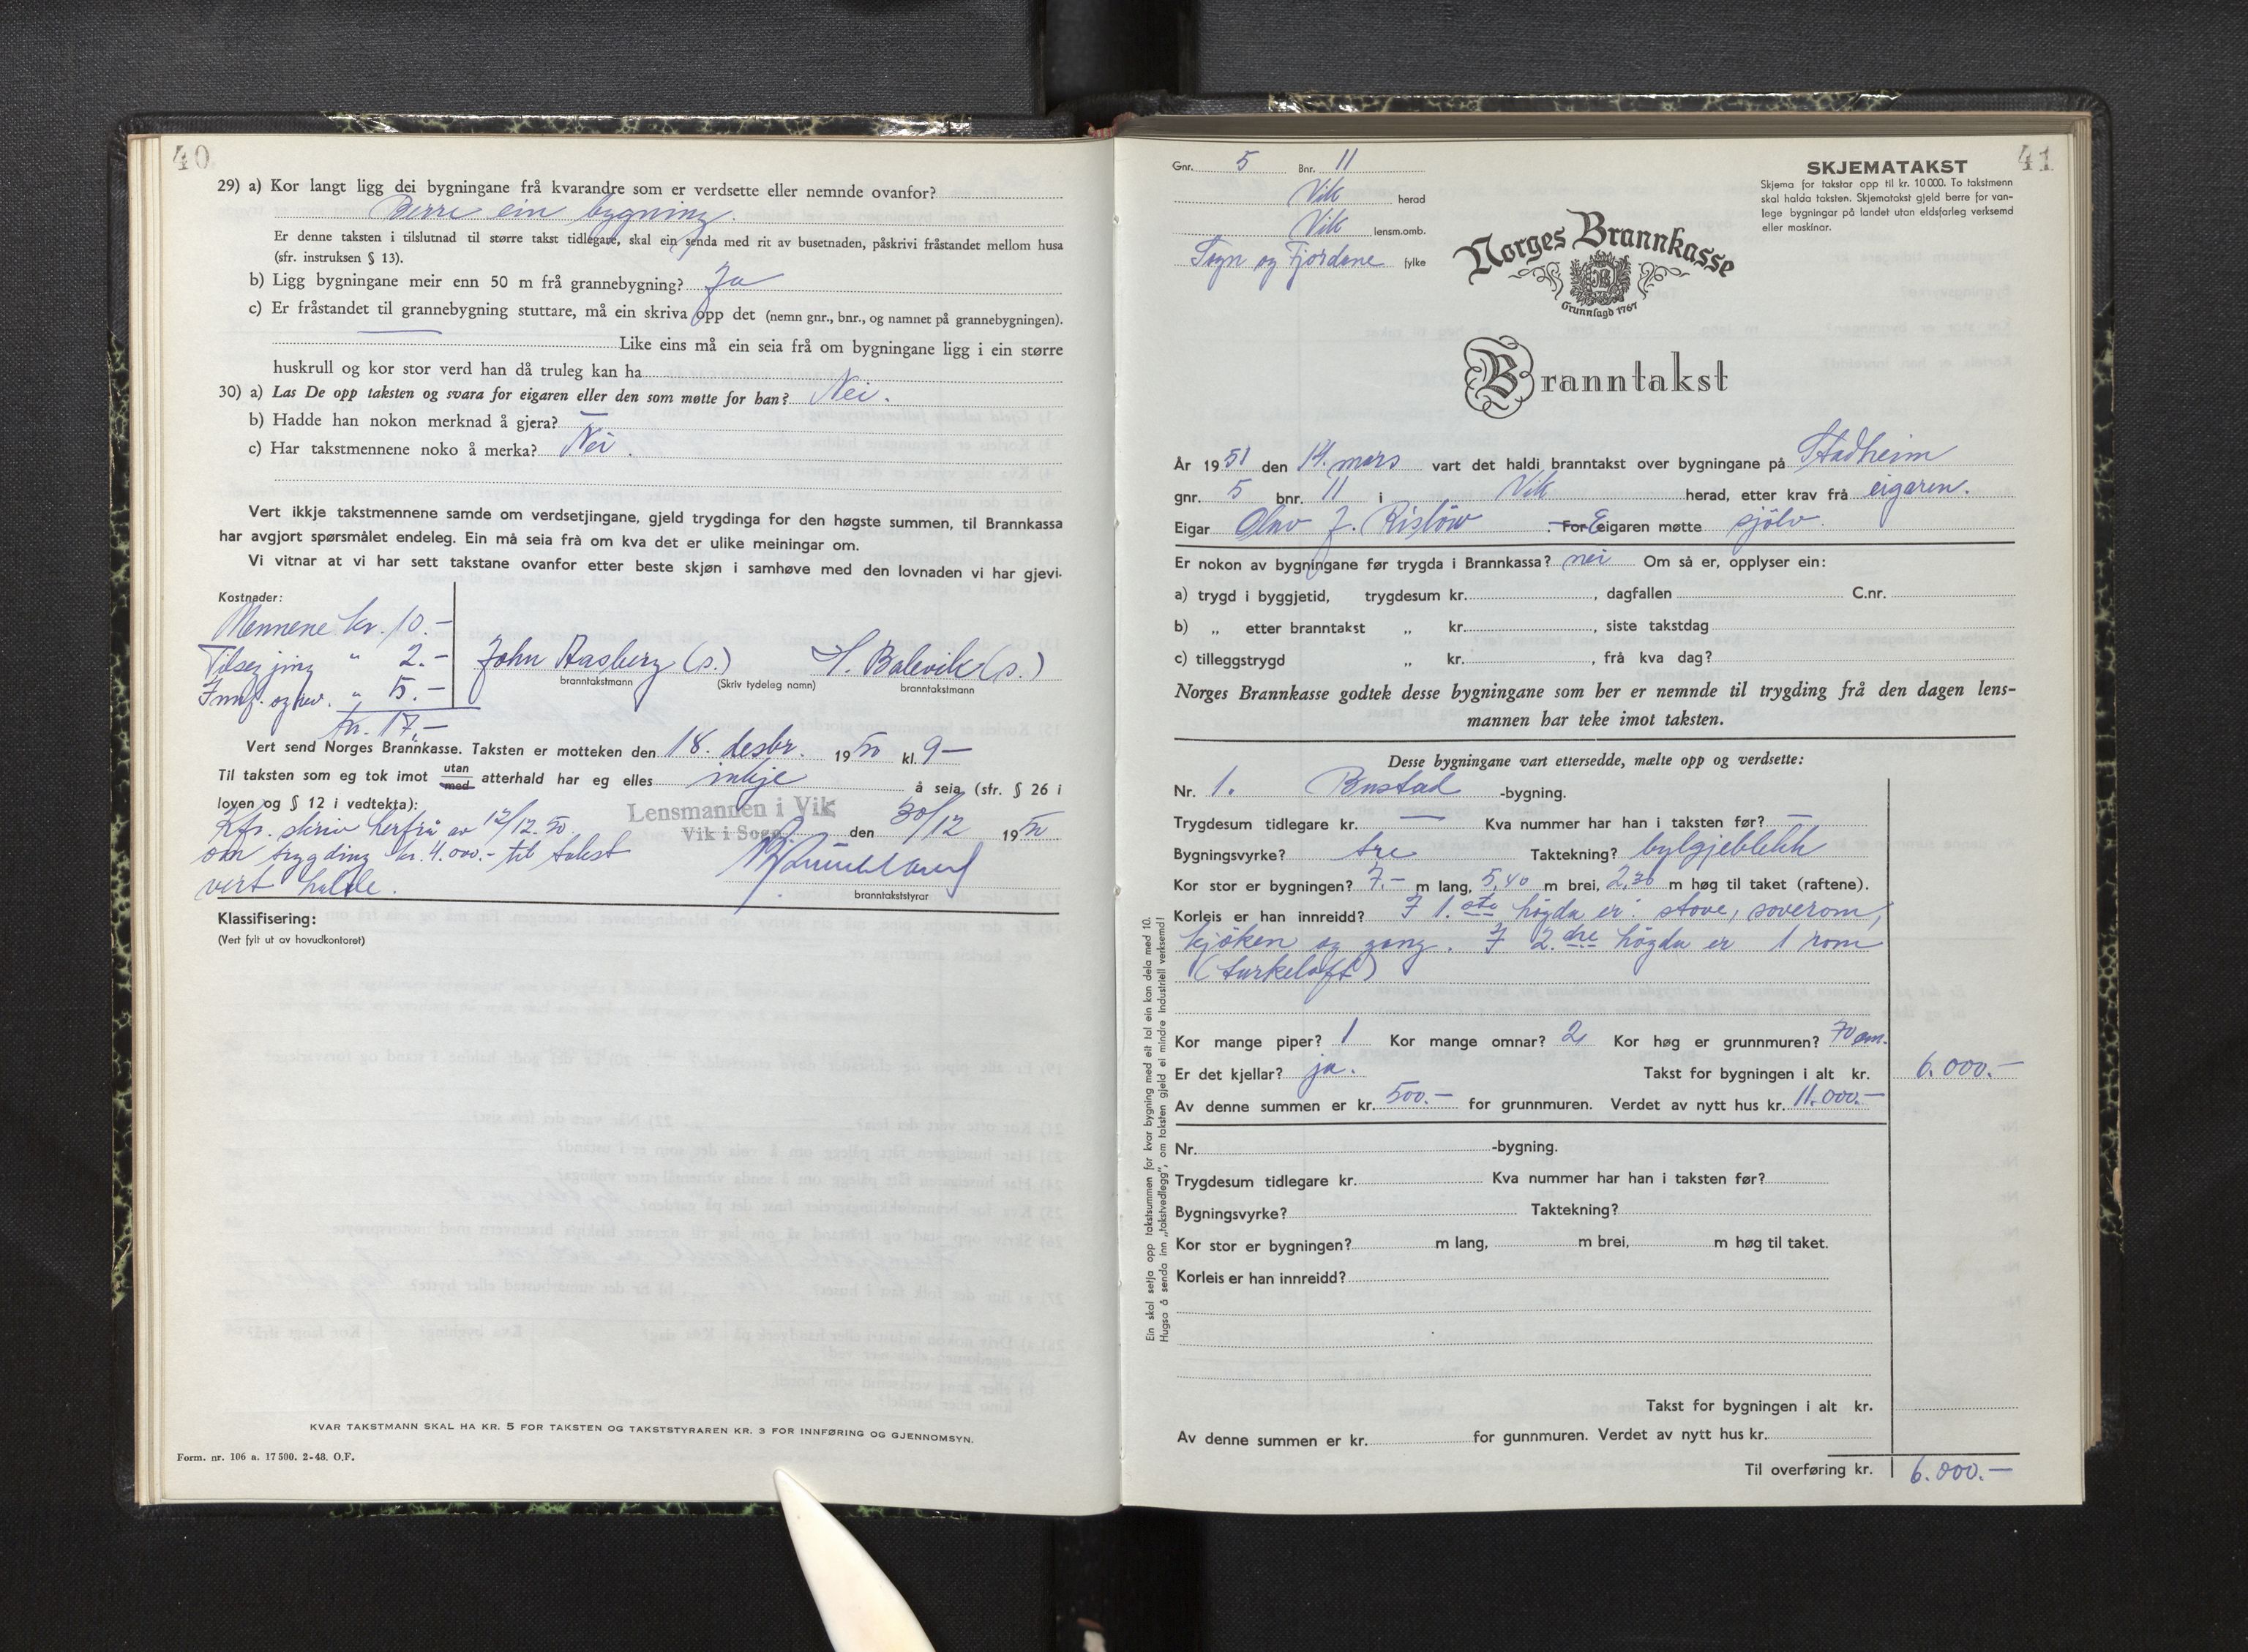 40
29) a) Kor langt ligg dei bygningane frå kvarandre som er verdsette eller nemnde ovanfor?
Berre ein bygning.
Er denne taksten i tilslutnad til større takst tidlegare, skal ein senda med rit av busetnaden, påskrivi fråstandet mellom husa
(sfr. instruksen § 13).
b) Ligg bygningane meir enn 50 m frå grannebygning? Ja
c) Er fråstandet til grannebygning stuttare, må ein skriva opp det (nemn gnr., bnr., og namnet på grannebygningen).
Like eins må ein seia frå om bygningane ligg i ein større
huskrull og kor stor verd han då truleg kan ha
30) a) Las De opp taksten og svara for eigaren eller den som møtte for han? Nei.
b) Hadde han nokon merknad å gjera? —
c) Har takstmennene noko å merka? Nei.
Vert ikkje takstmennene samde om verdsetjingane, gjeld trygdinga for den høgste summen, til Brannkassa
har avgjort spørsmålet endeleg. Ein må seia frå om kva det er ulike meiningar om.
Vi vitnar at vi har sett takstane ovanfor etter beste skjøn i samhøve med den lovnaden vi har gjevi.
Kostnader:
Mennene kr. 10.-
Tilsegjing " 2.-
Innf. og skr. " 5.-
kr. 17.-
John Aasberg (s.) S. Balevik (s.)
branntakstmann (Skriv tydeleg namn) branntakstmann
Vert send Norges Brannkasse. Taksten er motteken den 18. desbr. 1950 kl. 9—
Til taksten som eg tok imot utan med atterhald har eg elles inkje å seia (sfr. § 26 i
loven og § 12 i vedtekta):
Lensmannen i Vik
Vik i Sogn den 30/12 1950
Kfr. skriv herfrå av 12/12.50
om trygding kr. 4.000.- til takst
vert halde.
branntakststyrar
Klassifisering:
(Vert fylt ut av hovudkontoret)
KVAR TAKSTMANN SKAL HA KR. 5 FOR TAKSTEN OG TAKSTSTYRAREN KR. 3 FOR INNFØRING OG GJENNOMSYN.
Form. nr. 106 a. 17 500. 2-48. O.F.
41
Gnr. 5 Bnr. 11
Vik herad
Vik lensm.omb.
Sogn og Fjordane fylke
SKJEMATAKST
Skjema for takstar opp til kr. 10 000. To takstmenn
skal halda taksten. Skjematakst gjeld berre for van-
lege bygningar på landet utan eldsfarleg verksemd
eller maskinar.
Norges Brannkasse
Grunnlagd 1767
Branntakst
År 1951 den 14. mars vart det haldi branntakst over bygningane på Stadheim
gnr. 5 bnr. 11 i Vik herad, etter krav frå eigaren.
Eigar Olav J. Risløw . For Eeigaren møtte sjölv.
Er nokon av bygningane før trygda i Brannkassa? nei Om så er, opplyser ein:
a) trygd i byggjetid, trygdesum kr. , dagfallen C.nr.
b) „ etter branntakst „ kr. , siste takstdag
c) tilleggstrygd „ kr. , frå kva dag?
Norges Brannkasse godtek desse bygningane som her er nemnde til trygding frå den dagen lens-
mannen har teke imot taksten.
Desse bygningane vart ettersedde, mælte opp og verdsette:
Nr. 1. Bustad -bygning.
Trygdesum tidlegare kr. — Kva nummer har han i taksten før? —
Bygningsvyrke? tre Taktekning? bylgjeblekk
Kor stor er bygningen? 7.- m lang, 5,40 m brei, 2,30 m høg til taket (raftene).
Korleis er han innreidd? I 1.ste högda er: stove, soverom,
kjöken og gang. I 2.dre högda er 1 rom
(turkeloft)
Kor mange piper? 1 Kor mange omnar? 2 Kor høg er grunnmuren? 70 cm.
Er det kjellar? ja. Takst for bygningen i alt kr. 6.000.—
Av denne summen er kr. 500.— for grunnmuren. Verdet av nytt hus kr. 11.000.—
Nr. -bygning.
Trygdesum tidlegare kr. Kva nummer har han i taksten før?
Bygningsvyrke? Taktekning?
Kor stor er bygningen? m lang, m brei, m høg til taket.
Korleis er han innreidd?
Takst for bygningen i alt kr.
Av denne summen er kr. for gunnmuren. Verdet av nytt hus kr.
Til overføring kr. 6.000.—
Ein skal setja opp takstsummen for kvar bygning med eit tal ein kan dela med 10.
Hugsa å senda inn „takstvedlegg", om taksten gjeld ei mindre industriell verksemd!